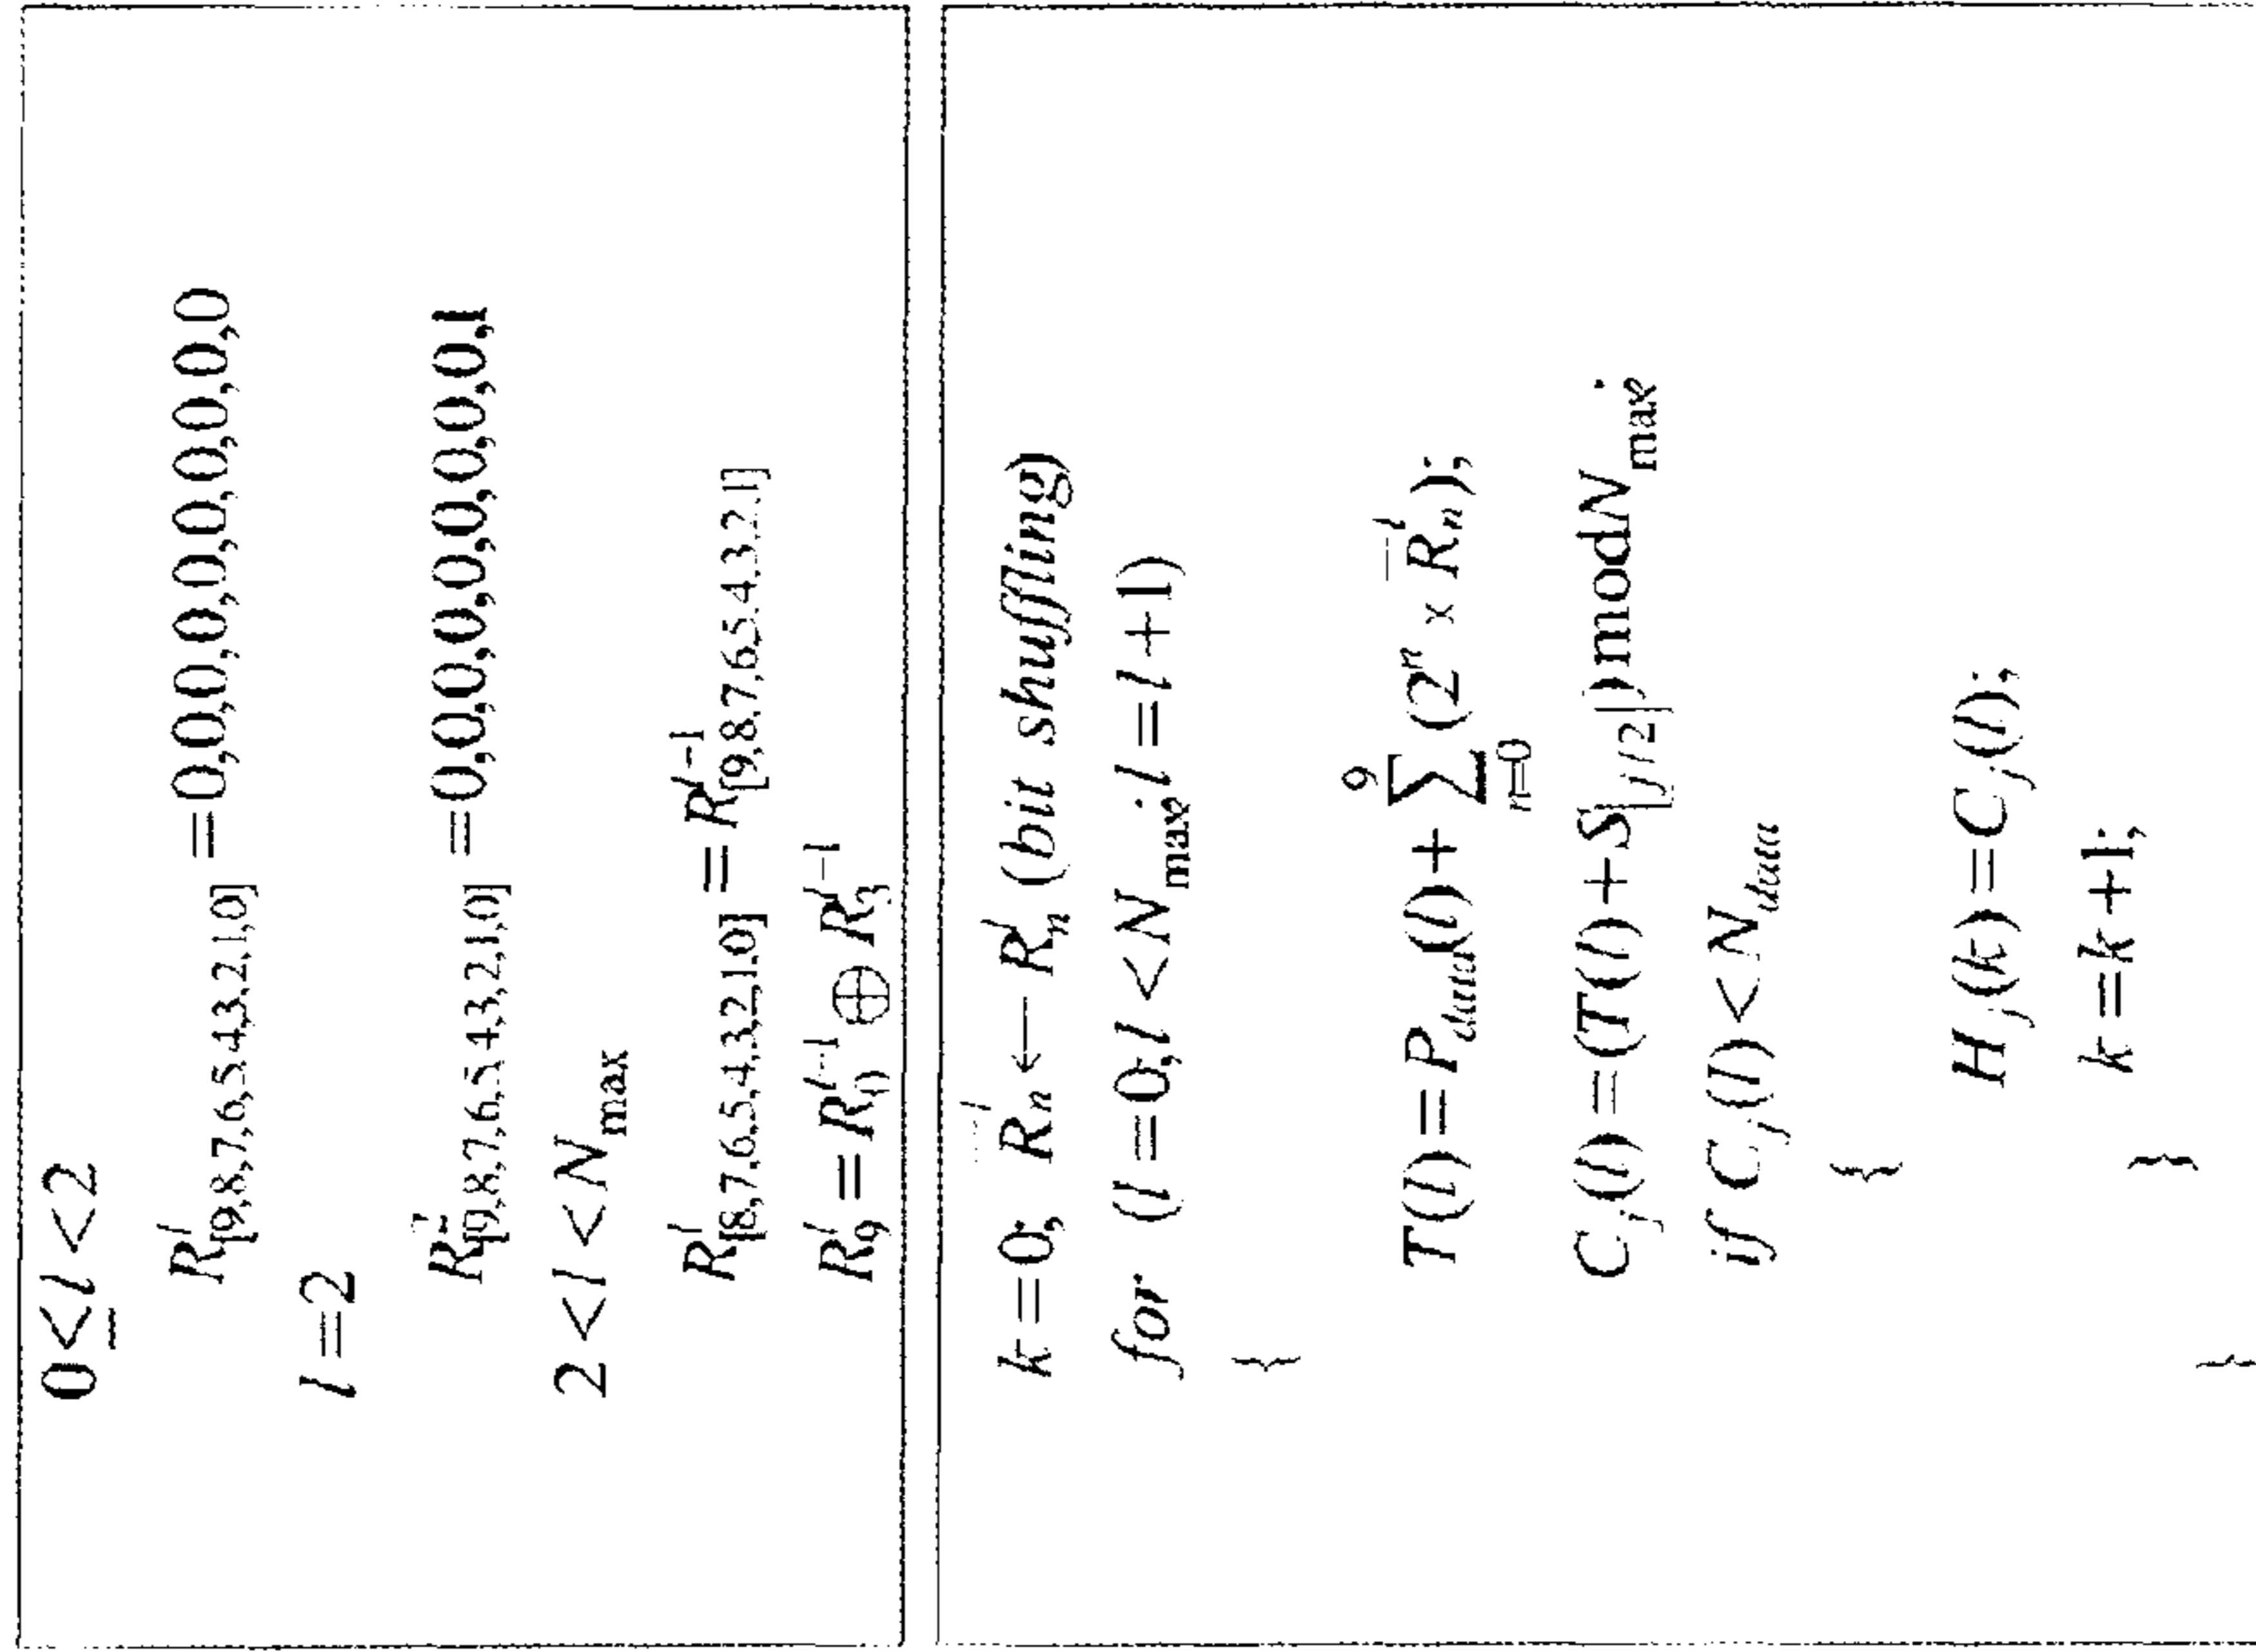 0≤l<2
R^l_[9,8,7,6,5,4,3,2,1,0] =0,0,0,0,0,0,0,0,0,0
l=2
R^2_[9,8,7,6,5,4,3,2,1,0] =0,0,0,0,0,0,0,0,0,1
2<l<N_max
R^l_[8,7,6,5,4,3,2,1,0] =R^{l-1}_[9,8,7,6,5,4,3,2,1]
R^l_9 =R^{l-1}_0 ⊕ R^{l-1}_3
k=0; R̅^l_n ← R^l_n (bit shuffling)
for (l=0;l<N_max;l=l+1)
{
T(l)=P_data(l)+∑_{n=0}^{9}(2^n × R̅^l_n);
C_j(l)=(T(l)+S_⌊j/2⌋)modN_max;
if C_j(l)<N_data
{
H_j(k)=C_j(l);
k=k+1;
}
}